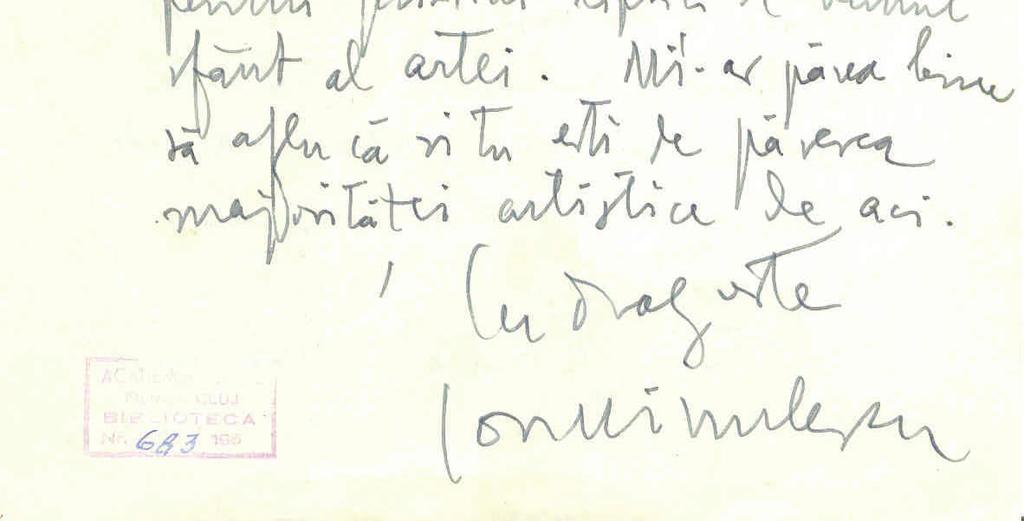 pentru
sfânt al artei. Mi-ar părea bine
să aflu că și tu ești de părerea
majorităței artistice de aci.
Cu dragoste
Ion Minulescu
CLUJ
BIBLIOTECA
Nr. 683 195